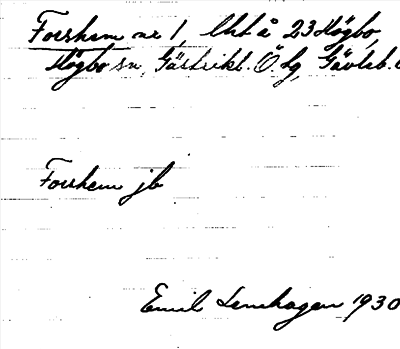 Forshem nr 1, lht å 23 Högbo,
Högbo sn, Gästrikl. Ö. dg, Gävleb.
Forshem jb
Emil Lenhagen 1930